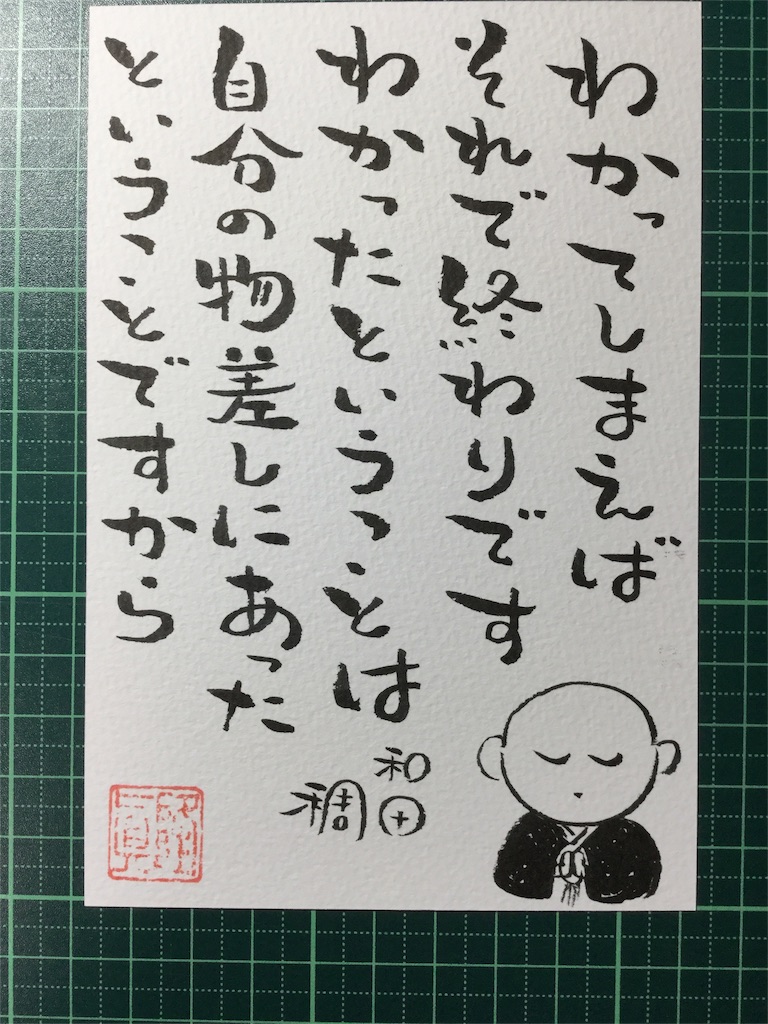 わかってしまえば
それで終わりです
わかったということは
自分の物差しにあった
ということですから
和田
稠